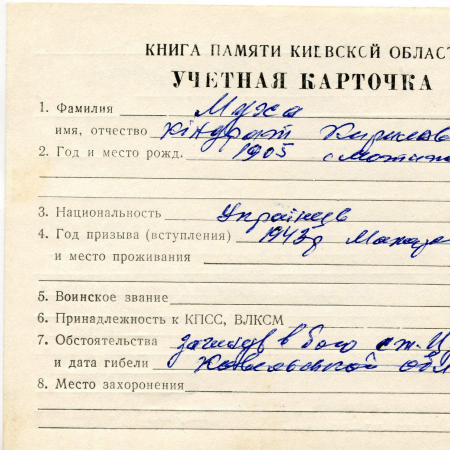 КНИГА ПАМЯТИ КИЕВСКОЙ ОБЛАСТ
УЧЕТНАЯ КАРТОЧКА
1. Фамилия Муха
имя, отчество Кіндрат
2. Год и место рожд. 1905 с
3. Национальность Українець
4. Год призыва (вступления) 1943р
и место проживания
5. Воинское звание
6. Принадлежность к КПСС, ВЛКСМ
7. Обстоятельства загинув в бою
и дата гибели обл
8. Место захоронения